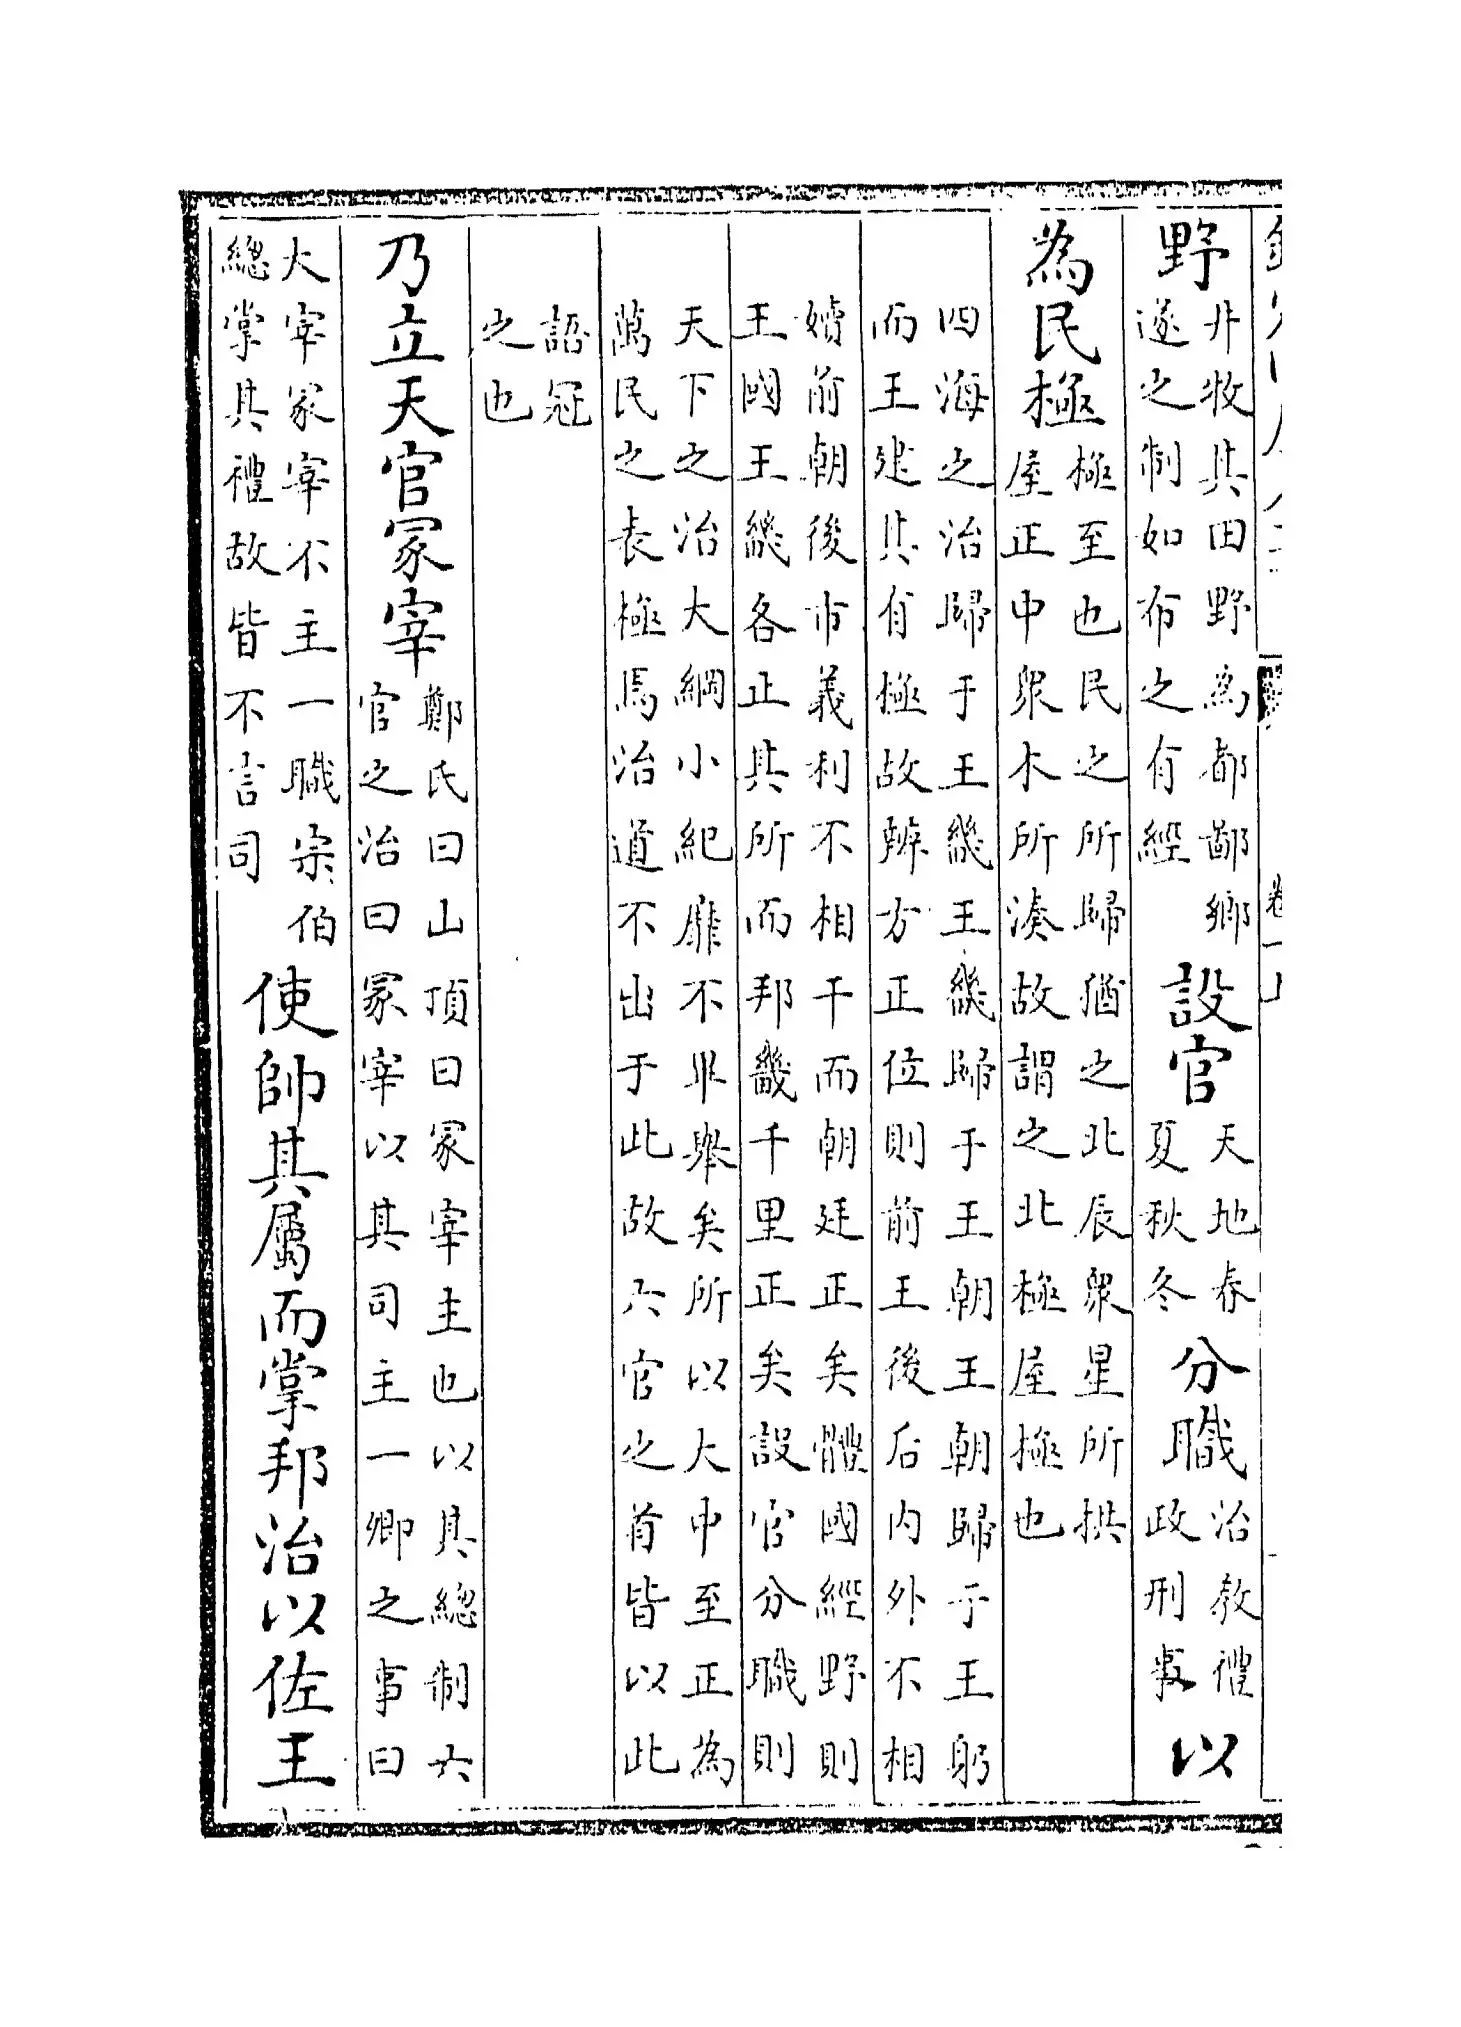 野井牧其田野為都鄙鄉遂之制如布之有經設官天地春夏秋冬分職治教禮政刑事以
為民極極至也民之所歸猶之北辰衆星所拱屋正中衆木所湊故謂之北極屋極也
四海之治歸于王畿王畿歸于王朝王朝歸于王躬
而王建其有極故辨方正位則前王後后内外不相
嬻前朝後市義利不相干而朝廷正矣體國經野則
王國王畿各正其所而邦畿千里正矣設官分職則
天下之治大綱小紀靡不畢舉矣所以大中至正為
萬民之表極焉治道不出于此故六官之首皆以此
語冠
之也
乃立天官冢宰鄭氏曰山頂曰冢宰主也以其總制六官之治曰冢宰以其司主一卿之事曰
大宰冢宰不主一職宗伯總掌其禮故皆不言司使帥其屬而掌邦治以佐王
卷一上